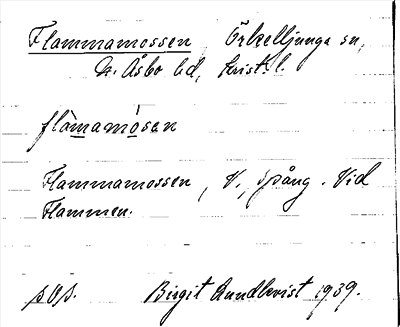 Flammamossen, Örkelljunga sn,
N. Åsbo hd, Krist. l.
flàmamósen
Flammamossen, V, Spång. Vid
Flammen.
Birgit Lundkvist 1939.